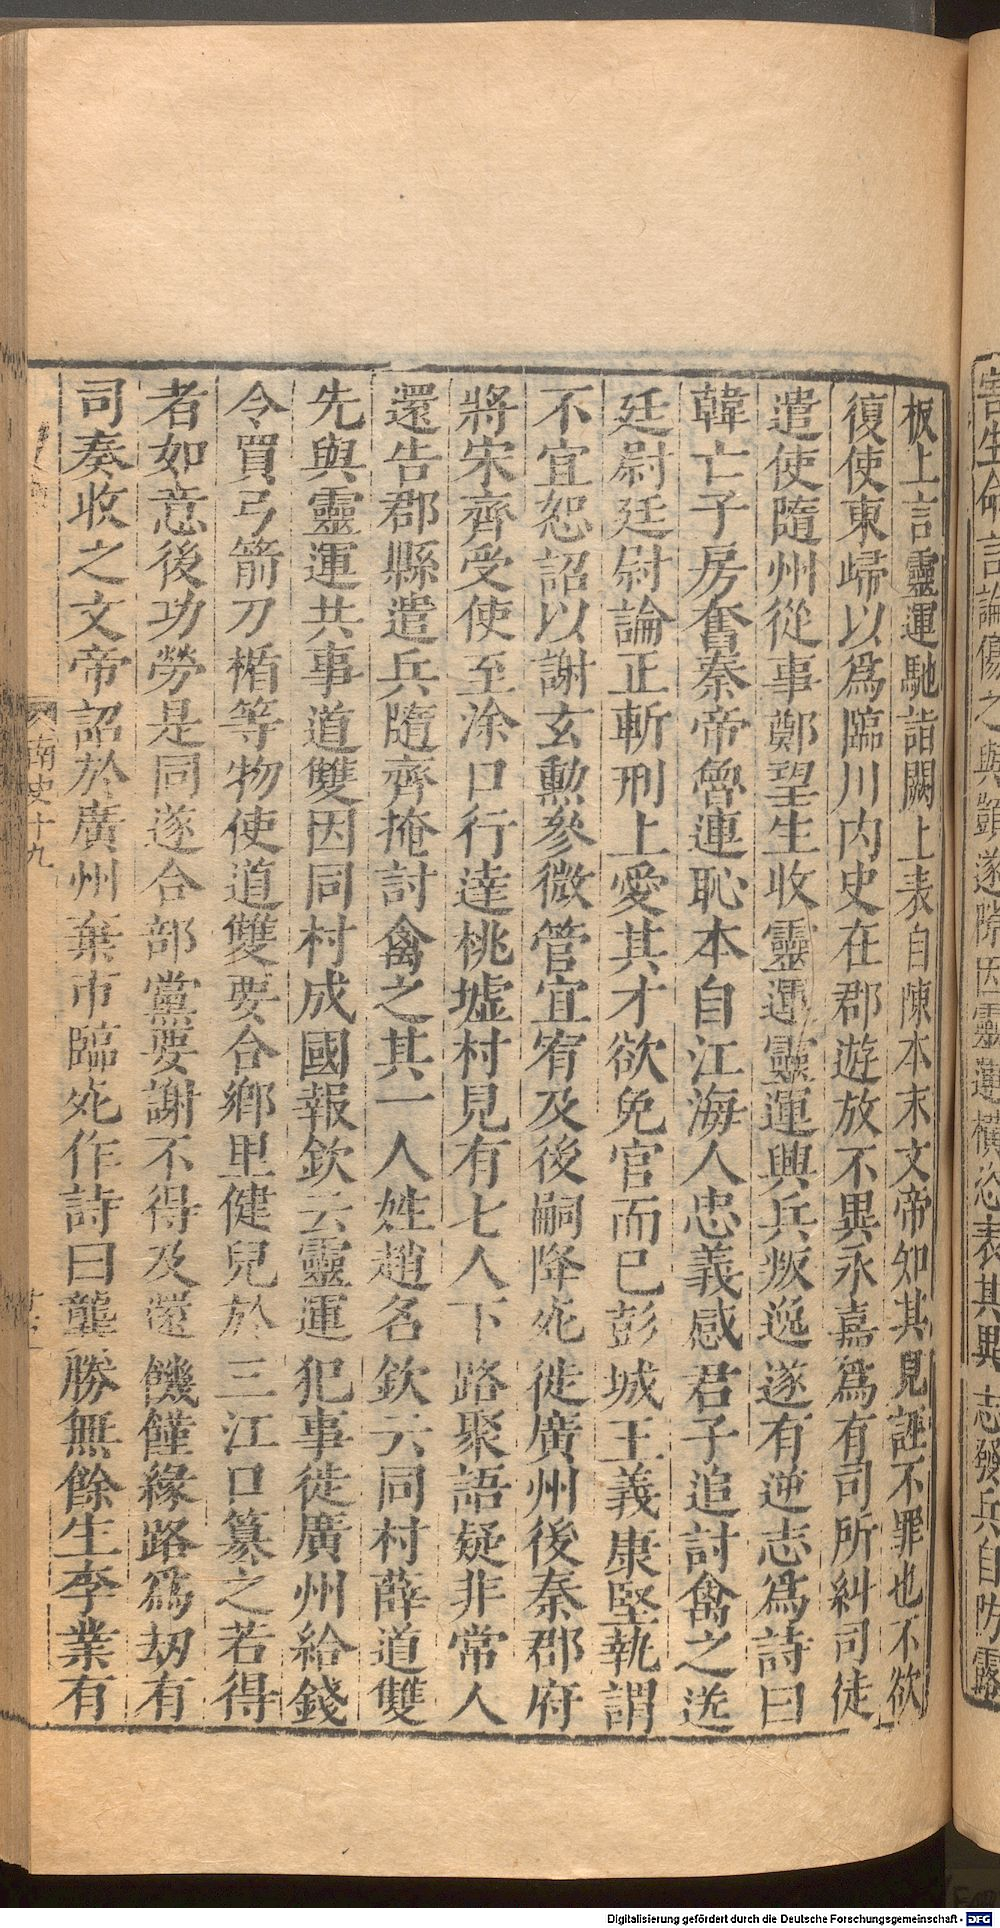 害生命言論傷之與顗遂隙因靈運橫恣表其異志發兵自防露
板上言靈運馳詣闕上表自陳本末文帝知其見誣不罪也不欲
復使東歸以爲臨川內史在郡遊放不異永嘉爲有司所糾司徒
遣使隨州從事鄭望生收靈運靈運興兵叛逸遂有逆志爲詩曰
韓亡子房奮秦帝魯連恥本自江海人忠義感君子追討禽之送
廷尉廷尉論正斬刑上愛其才欲免官而已彭城王義康堅執謂
不宜恕詔以謝玄勳參微管宜宥及後嗣降死徙廣州後秦郡府
將宋齊受使至涂口行達桃墟村見有七人下路聚語疑非常人
還告郡縣遣兵隨齊掩討禽之其一人姓趙名欽云同村薛道雙
先與靈運共事道雙因同村成國報欽云靈運犯事徙廣州給錢
令買弓箭刀楯等物使道雙要合鄉里健兒於三江口篡之若得
者如意後功勞是同遂合部黨要謝不得及還饑饉緣路爲劫有
司奏收之文帝詔於廣州棄市臨死作詩曰龔勝無餘生李業有
南史十九
Digitalisierung gefördert durch die Deutsche Forschungsgemeinschaft - DFG